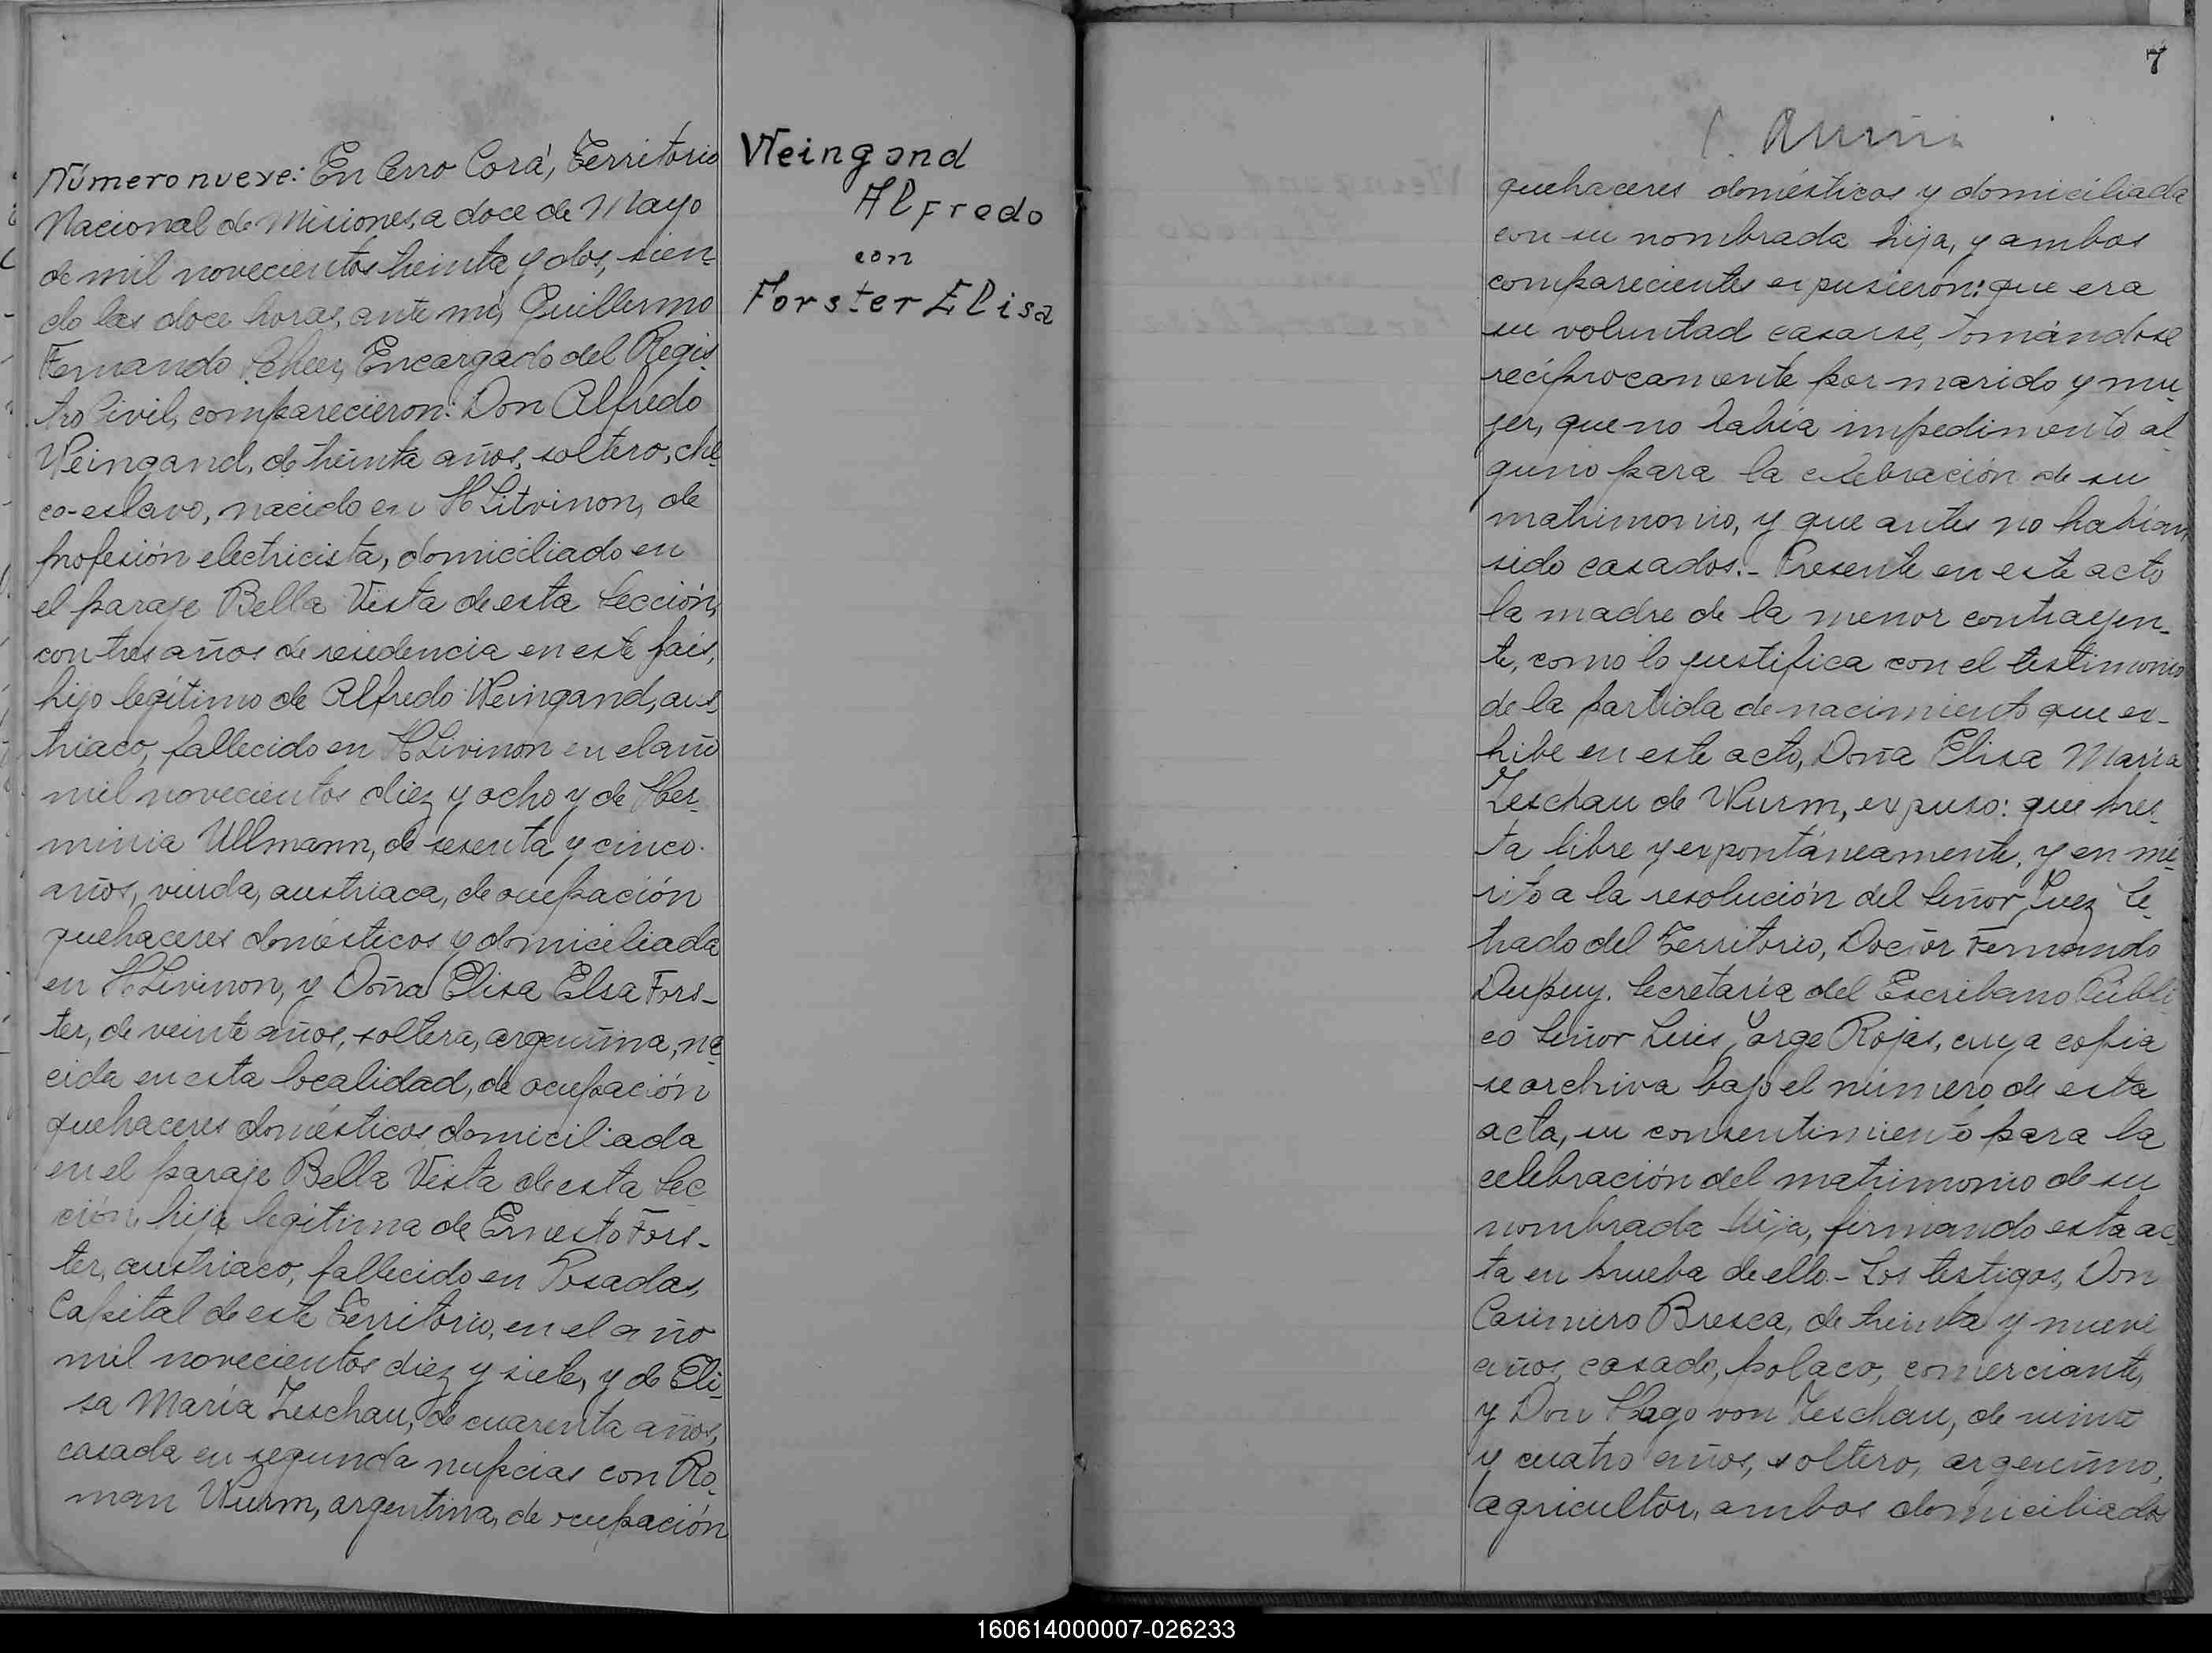 Número nueve: En Cerro Corá, Territorio
Nacional de Misiones, a doce de Mayo
de mil novecientos treinta y dos, sien-
do las doce horas, ante mí, Guillermo
Fernando Scheer, Encargado del Regis-
tro Civil, comparecieron: Don Alfredo
Weingand, de treinta años, soltero, che-
co-eslavo, nacido en H Litvinon, de
profesión electricista, domiciliado en
el paraje Bella Vista de esta Sección,
con tres años de residencia en este país,
hijo legítimo de Alfredo Weingand, aus-
triaco, fallecido en H Livinon en el año
mil novecientos diez y ocho y de Her-
minia Ullmann, de sesenta y cinco
años, viuda, austriaca, de ocupación
quehaceres domésticos y domiciliada
en H Livinon, y Doña Elisa Elsa Fors-
ter, de veinte años, soltera, argentina, na-
cida en esta localidad, de ocupación
quehaceres domésticos domiciliada
en el paraje Bella Vista de esta Sec
ción, hija legítima de Ernesto Fors-
ter, austriaco, fallecido en Posadas,
Capital de este Territorio, en el año
mil novecientos diez y siete, y de Eli-
sa María Zeschau, de cuarenta años,
casada en segunda nupcias con Ro-
man Wurm, argentina, de ocupación
Weingand
Alfredo
con
Forster Elisa
7
quehaceres domésticos y domiciliada
con su nombrada hija, y ambos
comparecientes expusieron: que era
su voluntad casarse, tomándose
recíprocamente por marido y mu-
jer, que no había impedimento al-
guno para la celebración de su
matrimonio, y que antes no habían
sido casados.- Presente en este acto
la madre de la menor contrayen-
te, como lo justifica con el testimonio
de la partida de nacimiento que ex-
hibe en este acto, Doña Elisa María
Zeschau de Wurm, expuso: que pres-
ta libre y expontáneamente, y en mé-
rito a la resolución del Señor Juez Le-
trado del Territorio, Doctor Fernando
Dupuy. Secretaría del Escribano Públi-
co Señor Luis Jorge Rojas, cuya copia
se archiva bajo el número de esta
acta, su consentimiento para la
celebración del matrimonio de su
nombrada hija, firmando esta ac-
ta en prueba de ello.- Los testigos, Don
Casimiro Bresca, de treinta y nueve
años, casado, polaco, comerciante,
y Don Hugo von Zeschau, de veinte
y cuatro años, soltero, argentino,
agricultor, ambos domiciliados
160614000007-026233